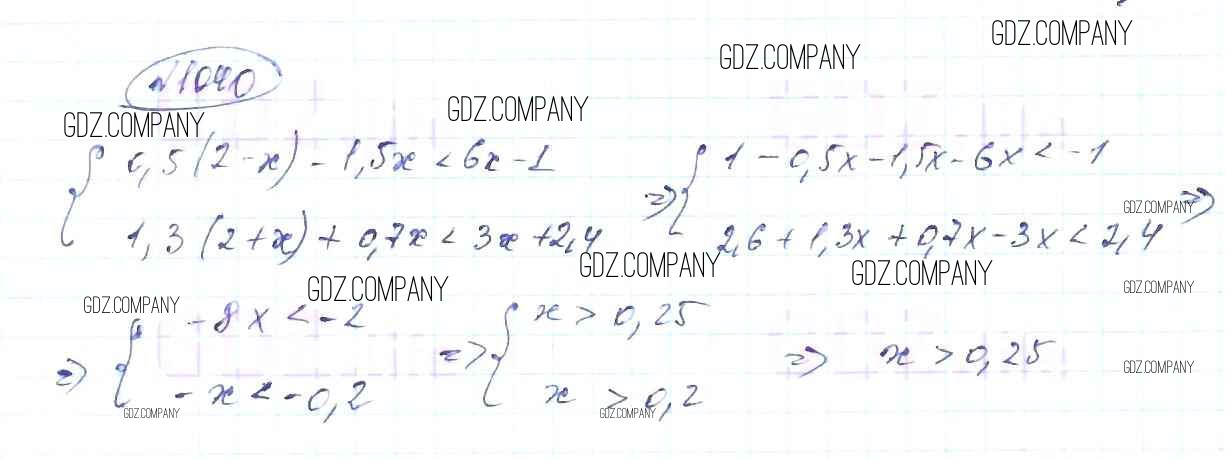 GDZ.COMPANY
GDZ.COMPANY
№1040
GDZ.COMPANY
GDZ.COMPANY
{ 0,5(2-x) - 1,5x < 6x - 1
1,3(2+x) + 0,7x < 3x + 2,4
=> { 1 - 0,5x - 1,5x - 6x < -1
2,6 + 1,3x + 0,7x - 3x < 2,4 =>
GDZ.COMPANY
GDZ.COMPANY
GDZ.COMPANY
GDZ.COMPANY
GDZ.COMPANY
GDZ.COMPANY
=> { -8x < -2
-x < -0,2
=> { x > 0,25
x > 0,2
=> x > 0,25
GDZ.COMPANY
GDZ.COMPANY
GDZ.COMPANY